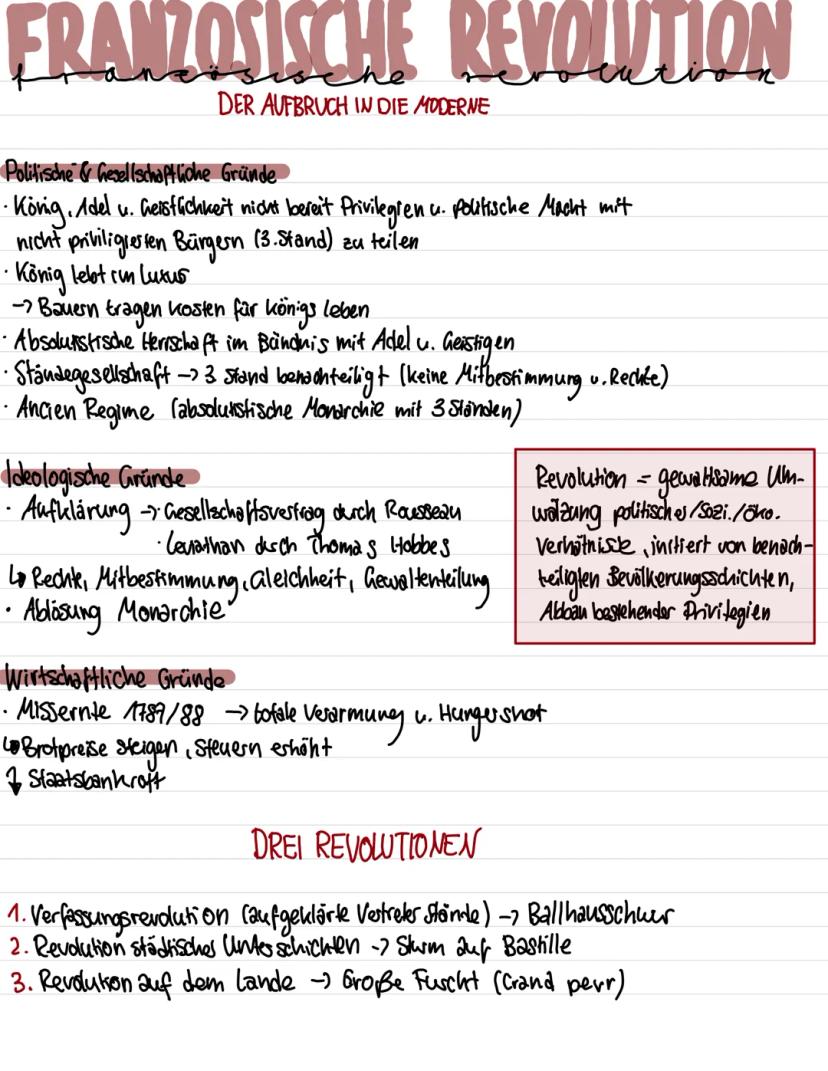 FRANZÖSISCHE REVOLUTION
französische revolution
DER AUFBRUCH IN DIE MODERNE
Politische & Gesellschaftliche Gründe
· König, Adel u. Geistlichkeit nicht bereit Privilegien u. politische Macht mit
nicht priviligierten Bürgern (3.Stand) zu teilen
· König lebt im Luxus
-> Bauern tragen kosten für königs leben
· Absolutistische Herrschaft im Bündnis mit Adel u. Geistigen
· Ständegesellschaft -> 3 Stand benachteiligt (keine Mitbestimmung u. Rechte)
· Ancien Regime (absolutistische Monarchie mit 3 Ständen)
Ideologische Gründe
· Aufklärung -> · Gesellschaftsvertrag durch Rousseau
· Leviathan durch Thomas Hobbes
↳ Rechte, Mitbestimmung, Gleichheit, Gewaltenteilung
· Ablösung Monarchie
Revolution = gewaltsame Um-
wälzung politischer/Sozi./öko.
Verhältnisse, initiert von benach-
teiligten Bevölkerungsschichten,
Abbau bestehender Privilegien
Wirtschaftliche Gründe
· Missernte 1789/88 -> totale Verarmung u. Hungersnot
↳ Brotpreise steigen, Steuern erhöht
↓ Staatsbankroft
DREI REVOLUTIONEN
1. Verfassungsrevolution (aufgeklärte Vertreter Stände) -> Ballhausschwur
2. Revolution städtischer Unterschichten -> Sturm auf Bastille
3. Revolution auf dem Lande -> Große Fuscht (Crand perr)